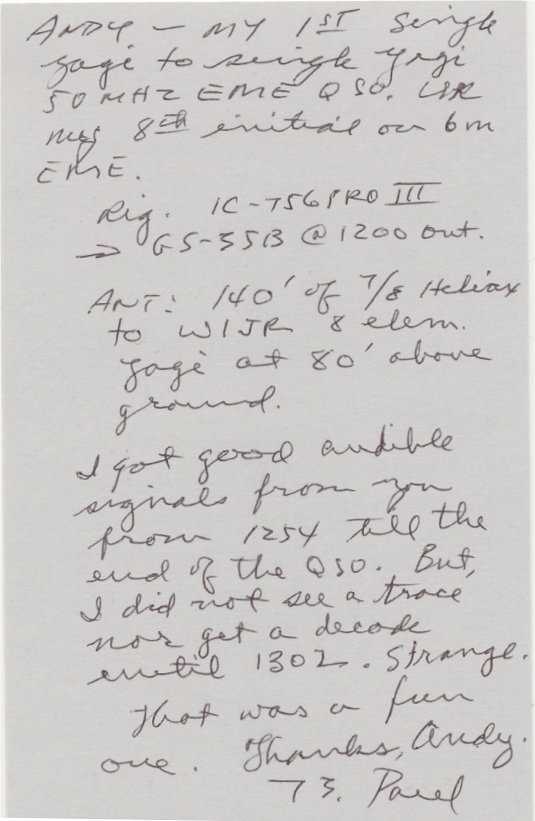 ANDY - MY 1ST Single
yagi to single yagi
50 MHZ EME QSO. UR
my 8th initial on 6m
EME.
Rig. IC-756PRO III
→ GS-35B @ 1200 out.
ANT: 140' of 7/8 Heliax
to W1JR 8 elem.
yagi at 80' above
ground.
I got good audible
signals from you
from 1254 till the
end of the QSO. But,
I did not see a trace
nor get a decode
until 1302. Strange.
That was a fun
one. Thanks, Andy.
73. Paul